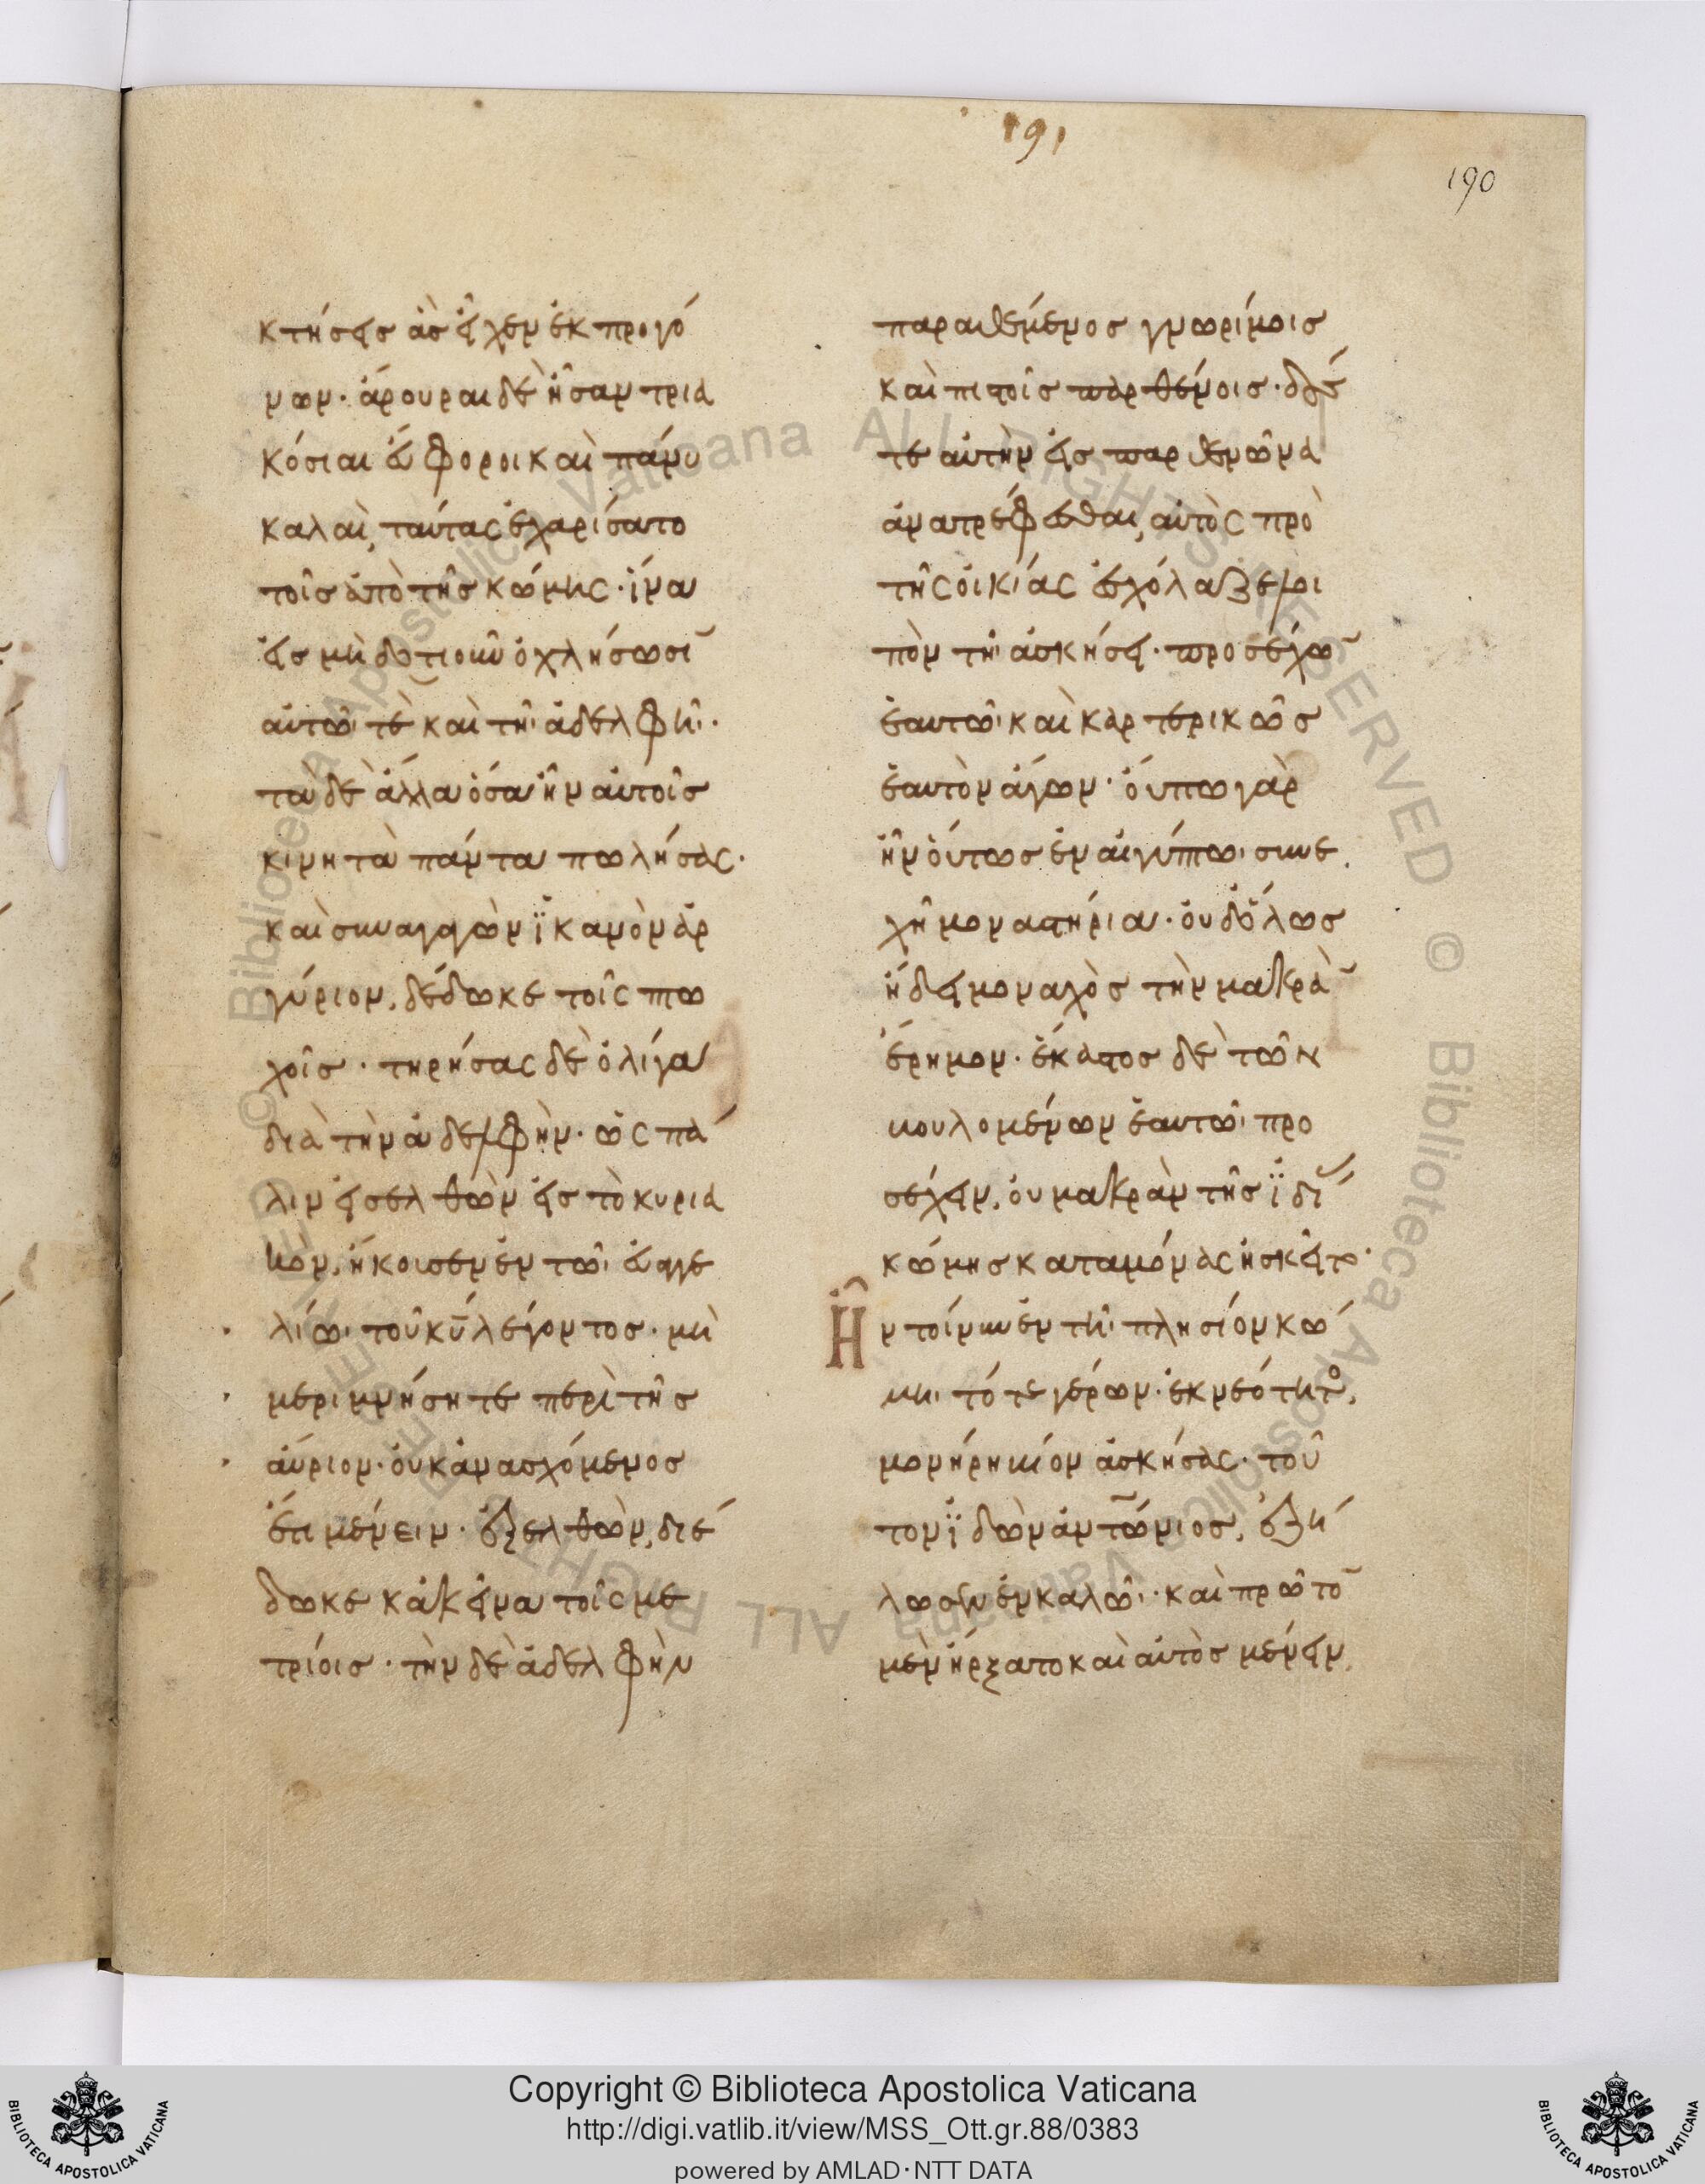 191
190
κτήσεις ἃς εἶχεν ἐκ προγό
νων· ἄρουραι δὲ ἦσαν τρια
κόσιαι εὔφοροι καὶ πάνυ
καλαὶ, ταύτας ἐχαρίσατο
τοῖς ἀπὸ τῆς κώμης· ἵνα
εἰς μὴδοτιοῦν ὀχλήσωσι̅
αὐτῶι τὲ καὶ τῆι ἀδελφῆι·
τὰ δὲ ἄλλα ὅσα ἦν αὐτοῖς
κινητὰ πάντα πωλήσας·
καὶ συναγαγὼν ϊκανὸν ἀρ
γύριον, δέδωκε τοῖς πτω
χοῖς· τηρήσας δὲ ὀλίγα
διὰ τὴν ἀδελφὴν· ὡς πά
λιν εἰσελθὼν εἰς τὸ κυρια
κον, ἤκουσεν ἐν τῶι εὐαγγε
λίωι τοῦ κ̅υ̅ λέγοντος· μὴ
μεριμνήσητε περὶ τῆς
αὔριον· οὐκ ἀνασχόμενος
ἔτι μένειν· ἐξελθὼν, διέ
δωκε κἀκεῖνα τοῖς με
τρίοις· τὴν δὲ ἀδελφὴν
παραθέμενος γνωρίμοις
καὶ πισταῖς παρθένοις· δούς
τε αὐτὴν εἰς παρθενῶνα
ἀνατρέφεσθαι, αὐτὸς πρὸ
τῆς οἰκίας ἐσχόλαζε λοι
πὸν τῆι ἀσκήσει· προσέχω̅
ἑαυτῶι καὶ καρτερικῶς
ἑαυτὸν ἄγων· οὔπω γὰρ
ἦν οὕτως ἐν αἰγύπτωι συνε
χῆ μοναστήρια· οὐδ ὅλως
ἤδει μοναχὸς τὴν μακρὰ̅
ἔρημον· ἕκαστος δὲ τῶν
βουλομένων ἑαυτῶι προ
σέχειν, οὐ μακρὰν τῆς ϊδί
κώμης καταμόνας ἠσκεῖτο·
Ἦν τοίνυν ἐν τῆι πλησίον κώ
μηι τότε γέρων· ἐκ νεότητο,
μονήρη βίον ἀσκήσας· τοῦ
τον ϊδὼν ἀντώνιος, ἐζή
λωσεν ἐν καλῶι· καὶ πρῶτο̅
μὲν ἤρξατο καὶ αὐτὸς μένειν
Copyright © Biblioteca Apostolica Vaticana
http://digi.vatlib.it/view/MSS_Ott.gr.88/0383
powered by AMLAD·NTT DATA
BIBLIOTECA APOSTOLICA VATICANA
BIBLIOTECA APOSTOLICA VATICANA
© Biblioteca Apostolica Vaticana ALL RIGHTS RESERVED © Biblioteca Apostolica Vaticana ALL RIGHTS RESERVED